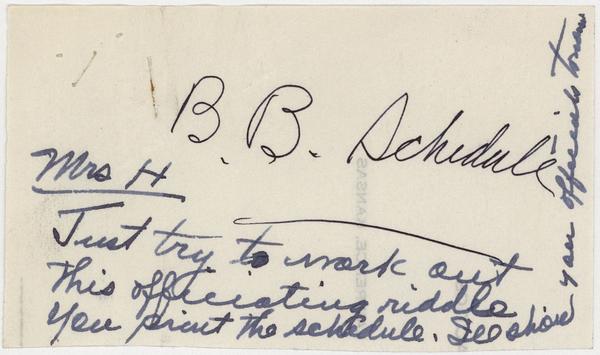 B. B. Schedule
Mrs H
Just try to work out
this officiating riddle
You print the schedule. I'll show
you officials
KANSAS